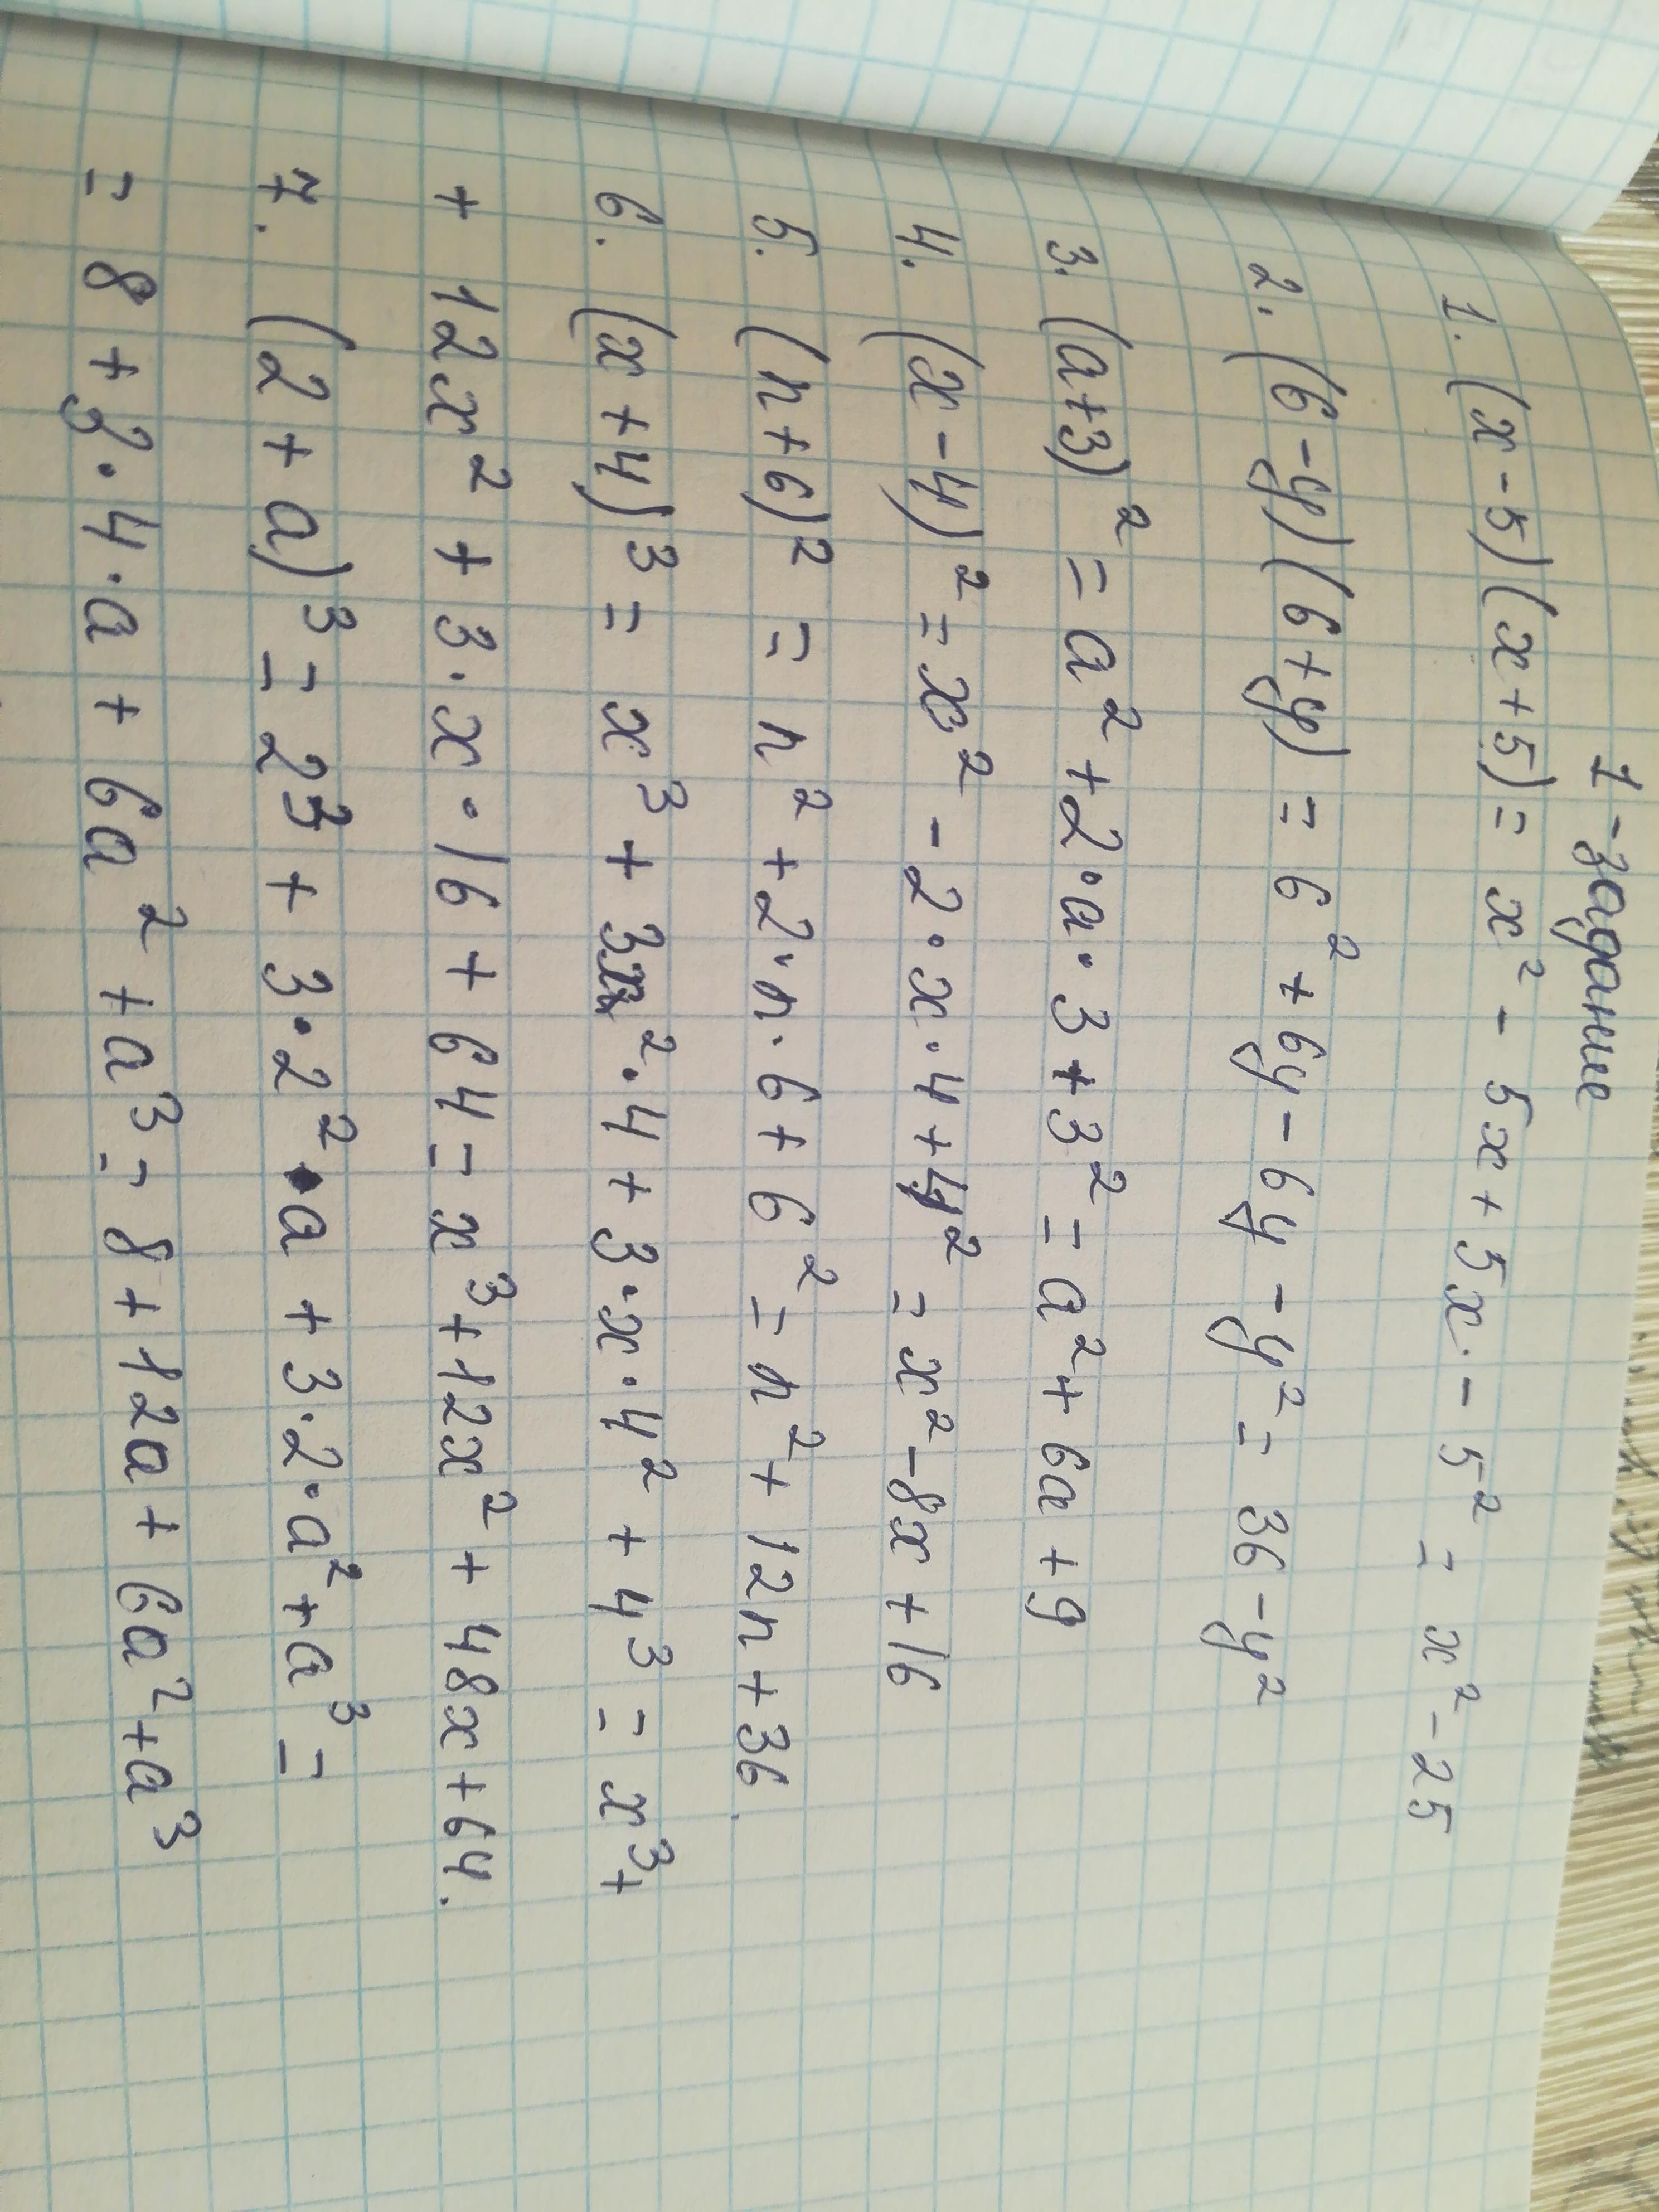 1-задание
1. (x-5)(x+5) = x² - 5x + 5x - 5² = x² - 25
2. (6-y)(6+y) = 6² + 6y - 6y - y² = 36 - y²
3. (a+3)² = a² + 2·a·3 + 3² = a² + 6a + 9
4. (x-4)² = x² - 2·x·4 + 4² = x² - 8x + 16
5. (n+6)² = n² + 2·n·6 + 6² = n² + 12n + 36.
6. (x+4)³ = x³ + 3x²·4 + 3·x·4² + 4³ = x³ +
+ 12x² + 3·x·16 + 64 = x³ + 12x² + 48x + 64.
7. (2+a)³ = 23 + 3·2²·a + 3·2·a² + a³ =
= 8 + 3·4·a + 6a² + a³ = 8 + 12a + 6a² + a³